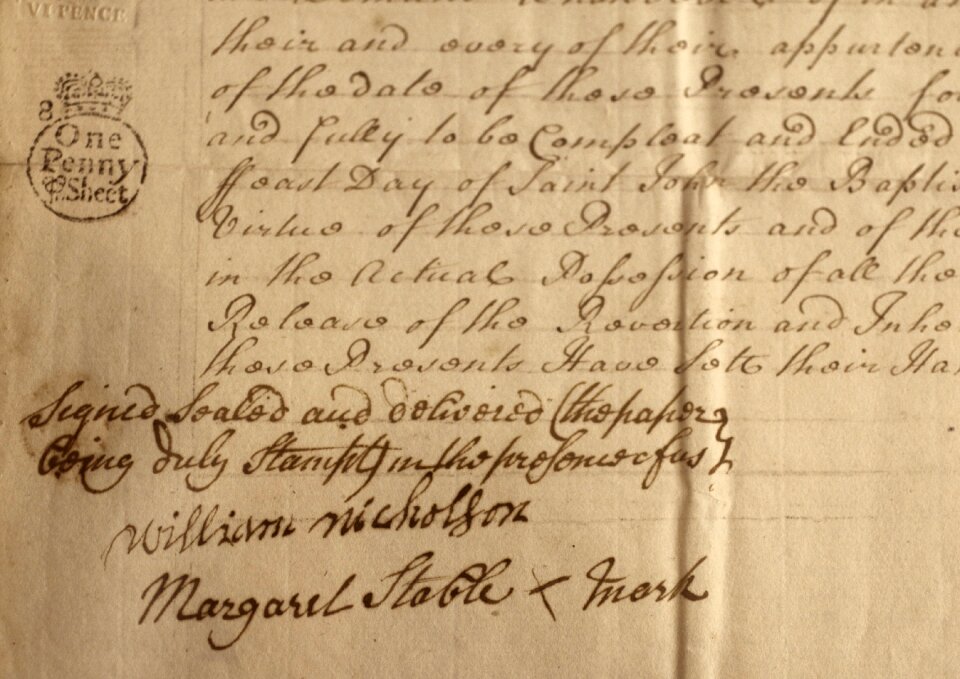 VI PENCE
8
One
Penny
P Sheet
their and every of their appurten
of the date of these Presents fo
and fully to be Compleat and Ended
ffeast Day of Saint John the Baptis
Virtue of these Presents and of the
in the Actual Possession of all the
Release of the Revertion and Inhe
these Presents Have Sett their Ha
Signed Sealed and delivered (the paper
being duly Stampt) in the presence of us
William Nicholson
Margaret Stable X mark